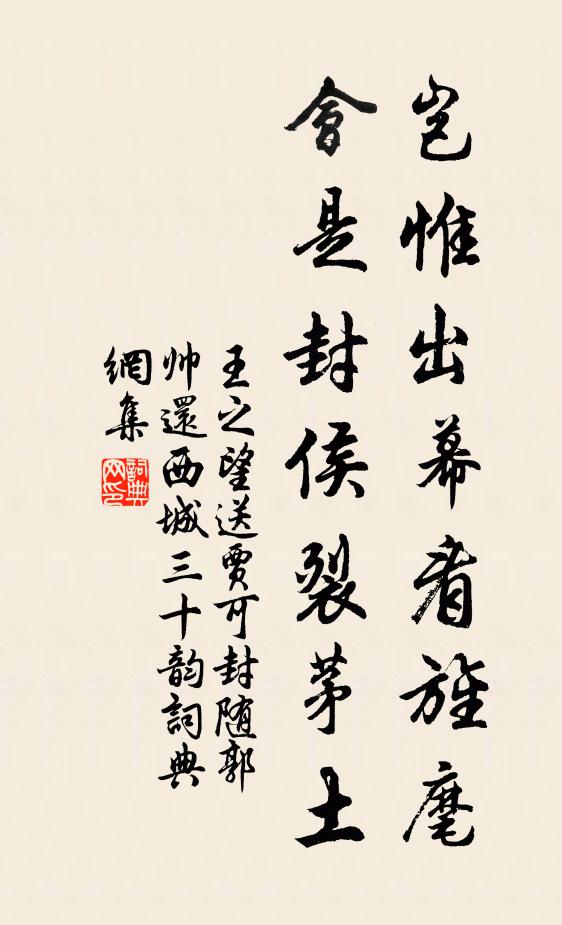 岂惟出幕看旌麾
會是封侯裂茅土
王之望送賈可封随郭
帅還西城三十韵詞典
網集
詞典网印